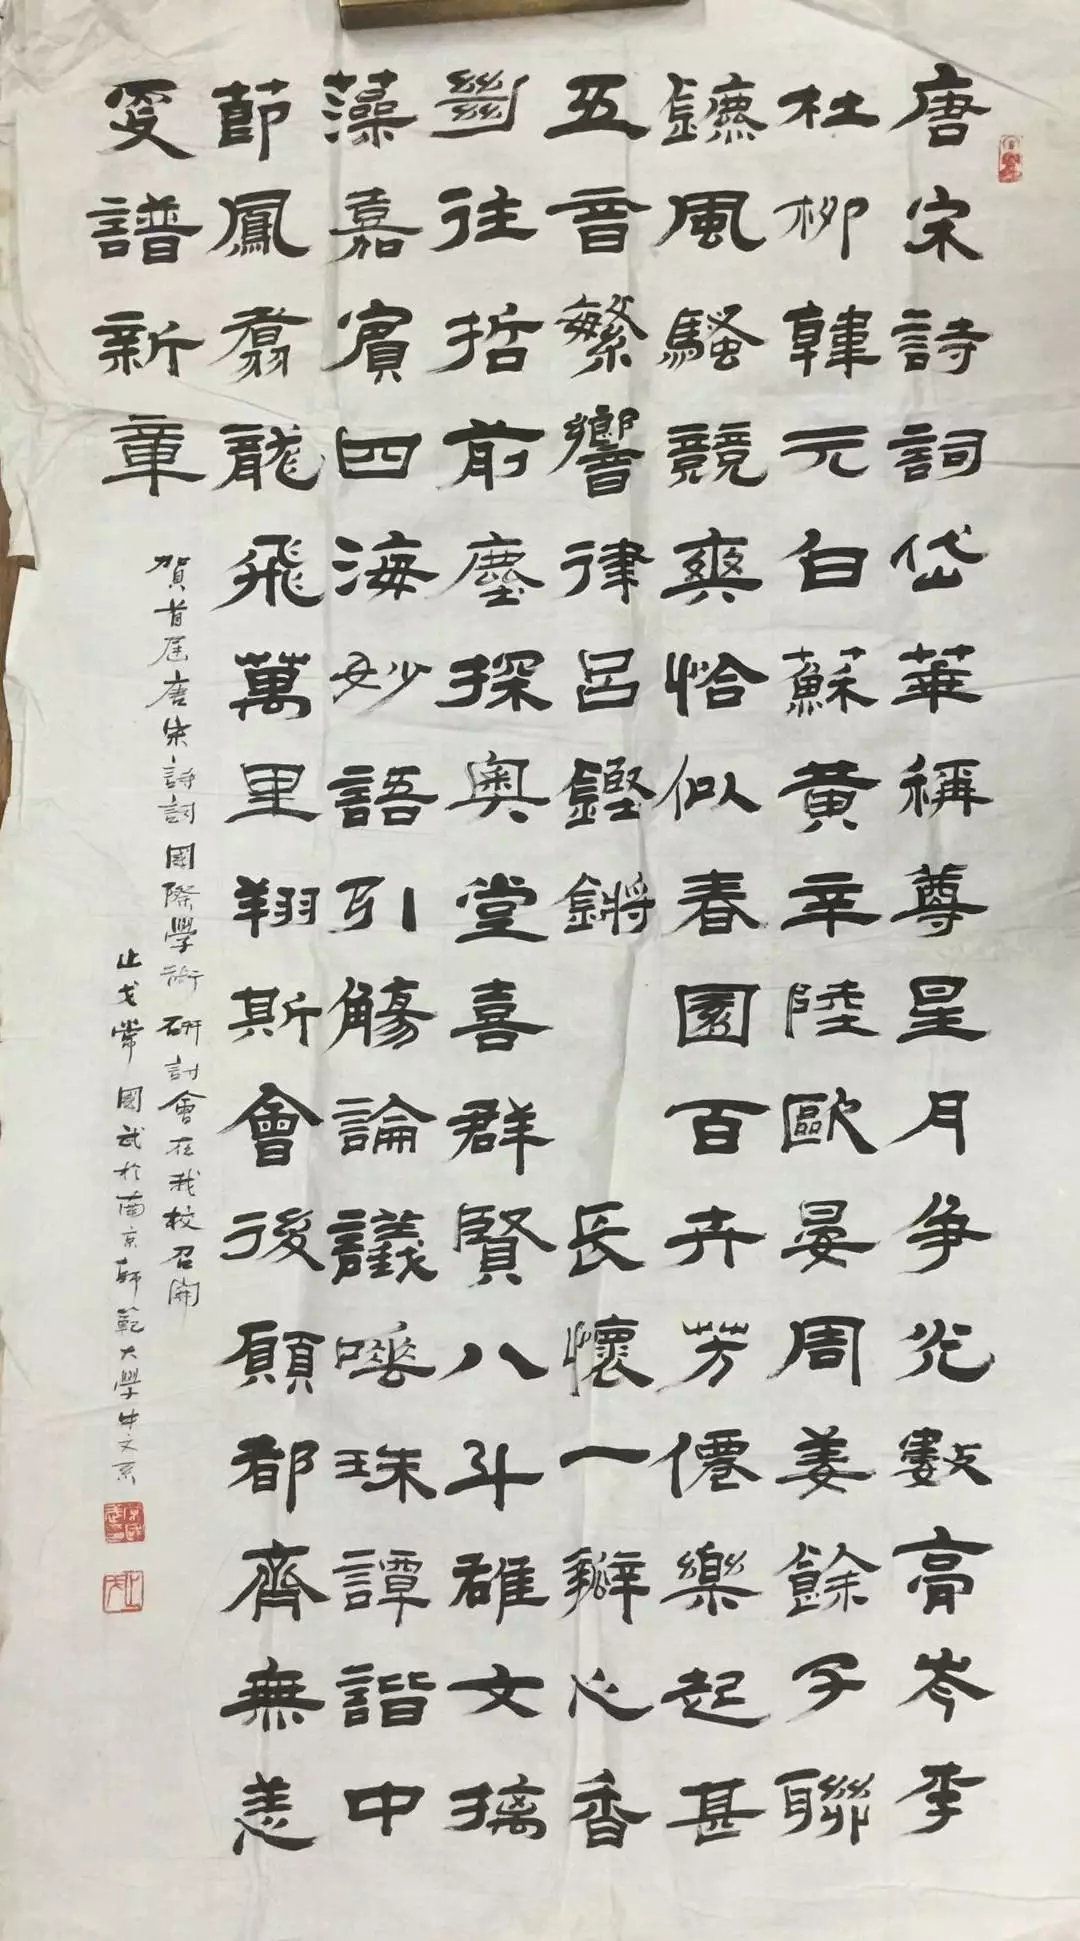 唐宋詩詞岱華稱尊星月爭光數高岑李
杜柳韓元白蘇黃辛陸歐晏周姜餘子聯
鑣風騷競爽恰似春園百卉芳僊樂起甚
五音繁響律呂鏗鏘 長懷一瓣心香
繼往哲前塵探奧堂喜群賢八斗雄文摛
藻嘉賓四海妙語引觴論議唾珠譚諧中
節鳳翥龍飛萬里翔斯會後願都齊無恙
更譜新章
賀首屆唐宋詩詞國際學術研討會在我校召開
止戈常國武於南京師範大學中文系